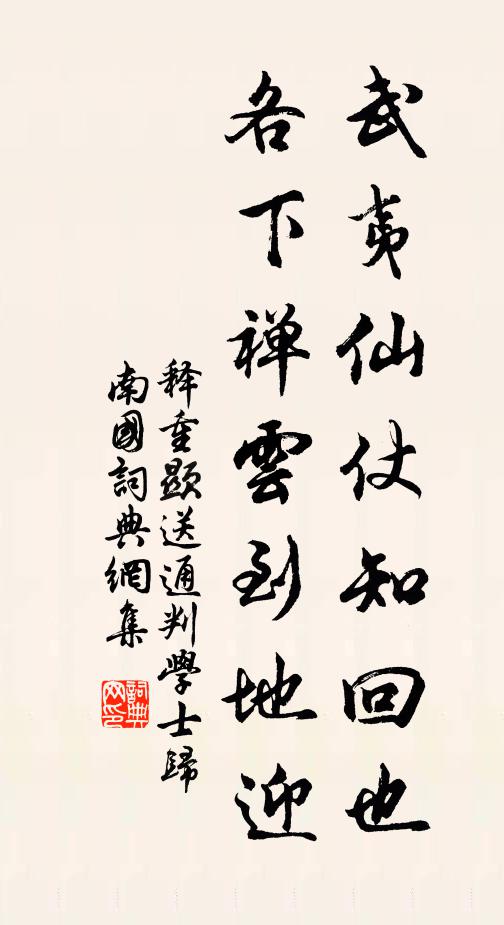 武夷仙仗知回也
各下禅雲到地迎
释重顯送通判學士歸
南國詞典網集
詞典
网印